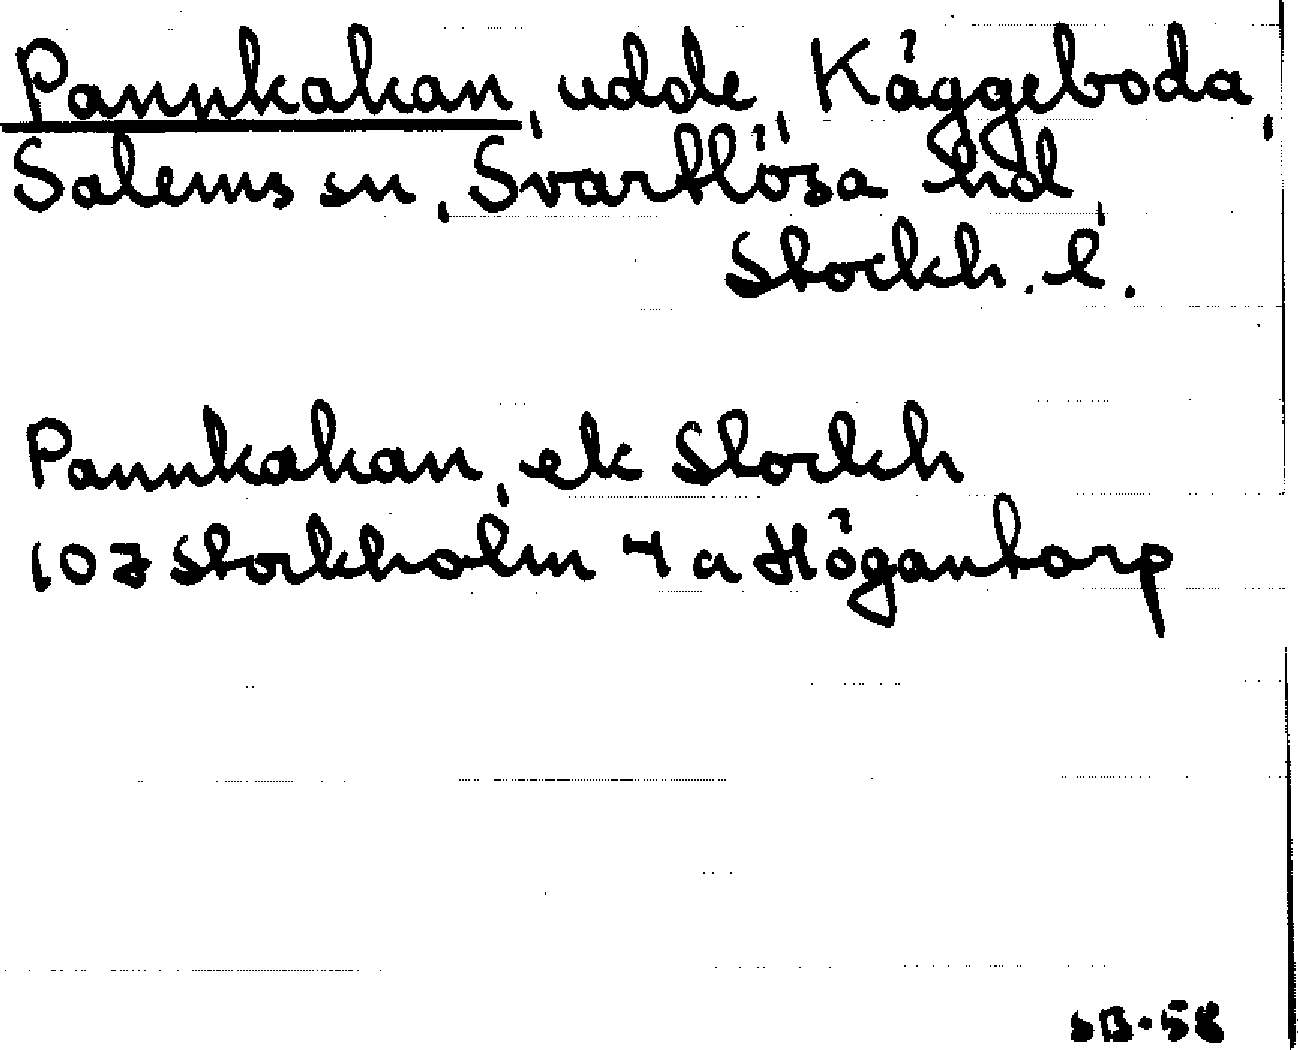 Pannkakan, udde, Käggeboda,
Salems sn, Svartlösa hd,
Stockh. l.
Pannkakan, ek Stockh
107 Stockholm 4a Högantorp
SB-58